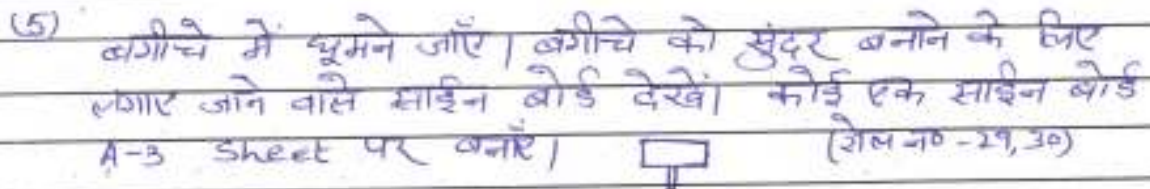 (5)
बगीचे में घूमने जाएँ। बगीचे को सुंदर बनाने के लिए
लगाए जाने वाले साईन बोर्ड देखें। कोई एक साईन बोर्ड
A-3 Sheet पर बनाएँ। (रोल न० -29,30)